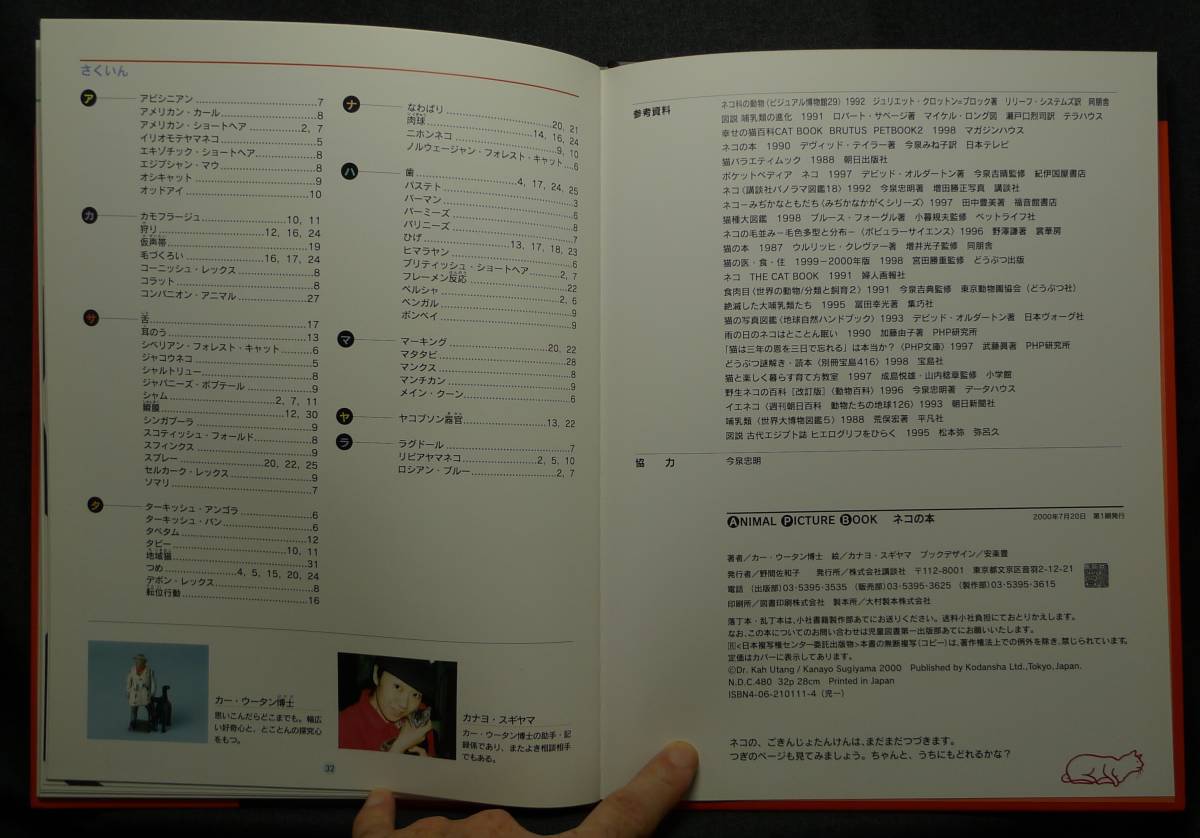 さくいん
ア
アビシニアン 7
アメリカン・カール 8
アメリカン・ショートヘア 2, 7
イリオモテヤマネコ 5
エキゾチック・ショートヘア 8
エジプシャン・マウ 8
オシキャット 9
オッドアイ 10
カ
カモフラージュ 10, 11
狩り 12, 16, 24
仮声帯 19
毛づくろい 16, 17, 24
コーニッシュ・レックス 8
コラット 8
コンパニオン・アニマル 27
サ
舌 17
耳のう 13
シベリアン・フォレスト・キャット 6
ジャコウネコ 5
シャルトリュー 8
ジャパニーズ・ボブテール 9
シャム 2, 7, 11
瞬膜 12, 30
シンガプーラ 9
スコティッシュ・フォールド 8
スフィンクス 9
スプレー 20, 22, 25
セルカーク・レックス 9
ソマリ 7
タ
ターキッシュ・アンゴラ 6
ターキッシュ・バン 6
タペタム 12
タビー 10, 11
地域猫 31
つめ 4, 5, 15, 20, 24
デボン・レックス 8
転位行動 16
ナ
なわばり 20, 21
肉球 14, 16, 24
ニホンネコ 9, 10
ノルウェージャン・フォレスト・キャット 6
ハ
歯 4, 17, 24, 25
バステト 3
バーマン 6
バーミーズ 8
バリニーズ 7
ひげ 13, 17, 18, 23
ヒマラヤン 6
ブリティッシュ・ショートヘア 2, 7
フレーメン反応 22
ペルシャ 2, 6
ベンガル 9
ボンベイ 9
マ
マーキング 20, 22
マタタビ 28
マンクス 8
マンチカン 9
メイン・クーン 6
ヤ
ヤコブソン器官 13, 22
ラ
ラグドール 7
リビアヤマネコ 2, 5, 10
ロシアン・ブルー 2, 7
カー・ウータン博士
思いこんだらどこまでも。幅広
い好奇心と、とことんの探究心
をもつ。
カナヨ・スギヤマ
カー・ウータン博士の助手・記
録係であり、またよき相談相手
でもある。
32
参考資料
ネコ科の動物〈ビジュアル博物館29〉 1992 ジュリエット・クロットン=ブロック著 リリーフ・システムズ訳 同朋舎
図説 哺乳類の進化 1991 ロバート・サベージ著 マイケル・ロング図 瀬戸口烈司訳 テラハウス
幸せの猫百科CAT BOOK BRUTUS PETBOOK2 1998 マガジンハウス
ネコの本 1990 デヴィッド・テイラー著 今泉みね子訳 日本テレビ
猫バラエティムック 1988 朝日出版社
ポケットペディア ネコ 1997 デビッド・オルダートン著 今泉吉晴監修 紀伊国屋書店
ネコ〈講談社パノラマ図鑑18〉 1992 今泉忠明著 増田勝正写真 講談社
ネコーみぢかなともだち〈みぢかなかがくシリーズ〉 1997 田中豊美著 福音館書店
猫種大図鑑 1998 ブルース・フォーグル著 小暮規夫監修 ペットライフ社
ネコの毛並みー毛色多型と分布ー〈ポピュラーサイエンス〉 1996 野澤謙著 裳華房
猫の本 1987 ウルリッヒ・クレヴァー著 増井光子監修 同朋舎
猫の医・食・住 1999－2000年版 1998 宮田勝重監修 どうぶつ出版
ネコ THE CAT BOOK 1991 婦人画報社
食肉目〈世界の動物/分類と飼育2〉 1991 今泉吉典監修 東京動物園協会（どうぶつ社）
絶滅した大哺乳類たち 1995 冨田幸光著 集巧社
猫の写真図鑑〈地球自然ハンドブック〉 1993 デビッド・オルダートン著 日本ヴォーグ社
雨の日のネコはとことん眠い 1990 加藤由子著 PHP研究所
「猫は三年の恩を三日で忘れる」は本当か？〈PHP文庫〉 1997 武藤眞著 PHP研究所
どうぶつ謎解き・読本〈別冊宝島416〉 1998 宝島社
猫と楽しく暮らす育て方教室 1997 成島悦雄・山内稔章監修 小学館
野生ネコの百科［改訂版］〈動物百科〉 1996 今泉忠明著 データハウス
イエネコ〈週刊朝日百科 動物たちの地球126〉 1993 朝日新聞社
哺乳類〈世界大博物図鑑5〉 1988 荒俣宏著 平凡社
図説 古代エジプト誌 ヒエログリフをひらく 1995 松本弥 弥呂久
協 力 今泉忠明
ANIMAL PICTURE BOOK ネコの本 2000年7月20日 第1刷発行
著者／カー・ウータン博士 絵／カナヨ・スギヤマ ブックデザイン／安楽豊
発行者／野間佐和子 発行所／株式会社講談社 〒112-8001 東京都文京区音羽2-12-21
電話 （出版部）03-5395-3535 （販売部）03-5395-3625 （製作部）03-5395-3615
印刷所／図書印刷株式会社 製本所／大村製本株式会社
落丁本・乱丁本は、小社書籍製作部あてにお送りください。送料小社負担にておとりかえします。
なお、この本についてのお問い合わせは児童図書第一出版部あてにお願いいたします。
<日本複写権センター委託出版物>本書の無断複写（コピー）は、著作権法上での例外を除き、禁じられています。
定価はカバーに表示してあります。
©Dr. Kah Utang / Kanayo Sugiyama 2000 Published by Kodansha Ltd.,Tokyo,Japan.
N.D.C.480 32p 28cm Printed in Japan
ISBN4-06-210111-4（児一）
ネコの、ごきんじょたんけんは、まだまだつづきます。
つぎのページも見てみましょう。ちゃんと、うちにもどれるかな？